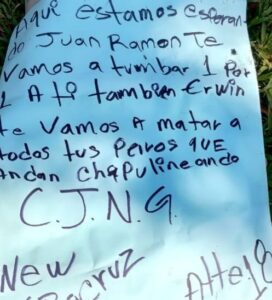 Aquí estamos esperan-
do Juan Ramon Te
Vamos a tumbar 1 Por
1 A ti tambien Erwin
te Vamos A matar a
todos tus Perros QUE
Andan chapulineando
C.J.N.G.
New
Atte 18